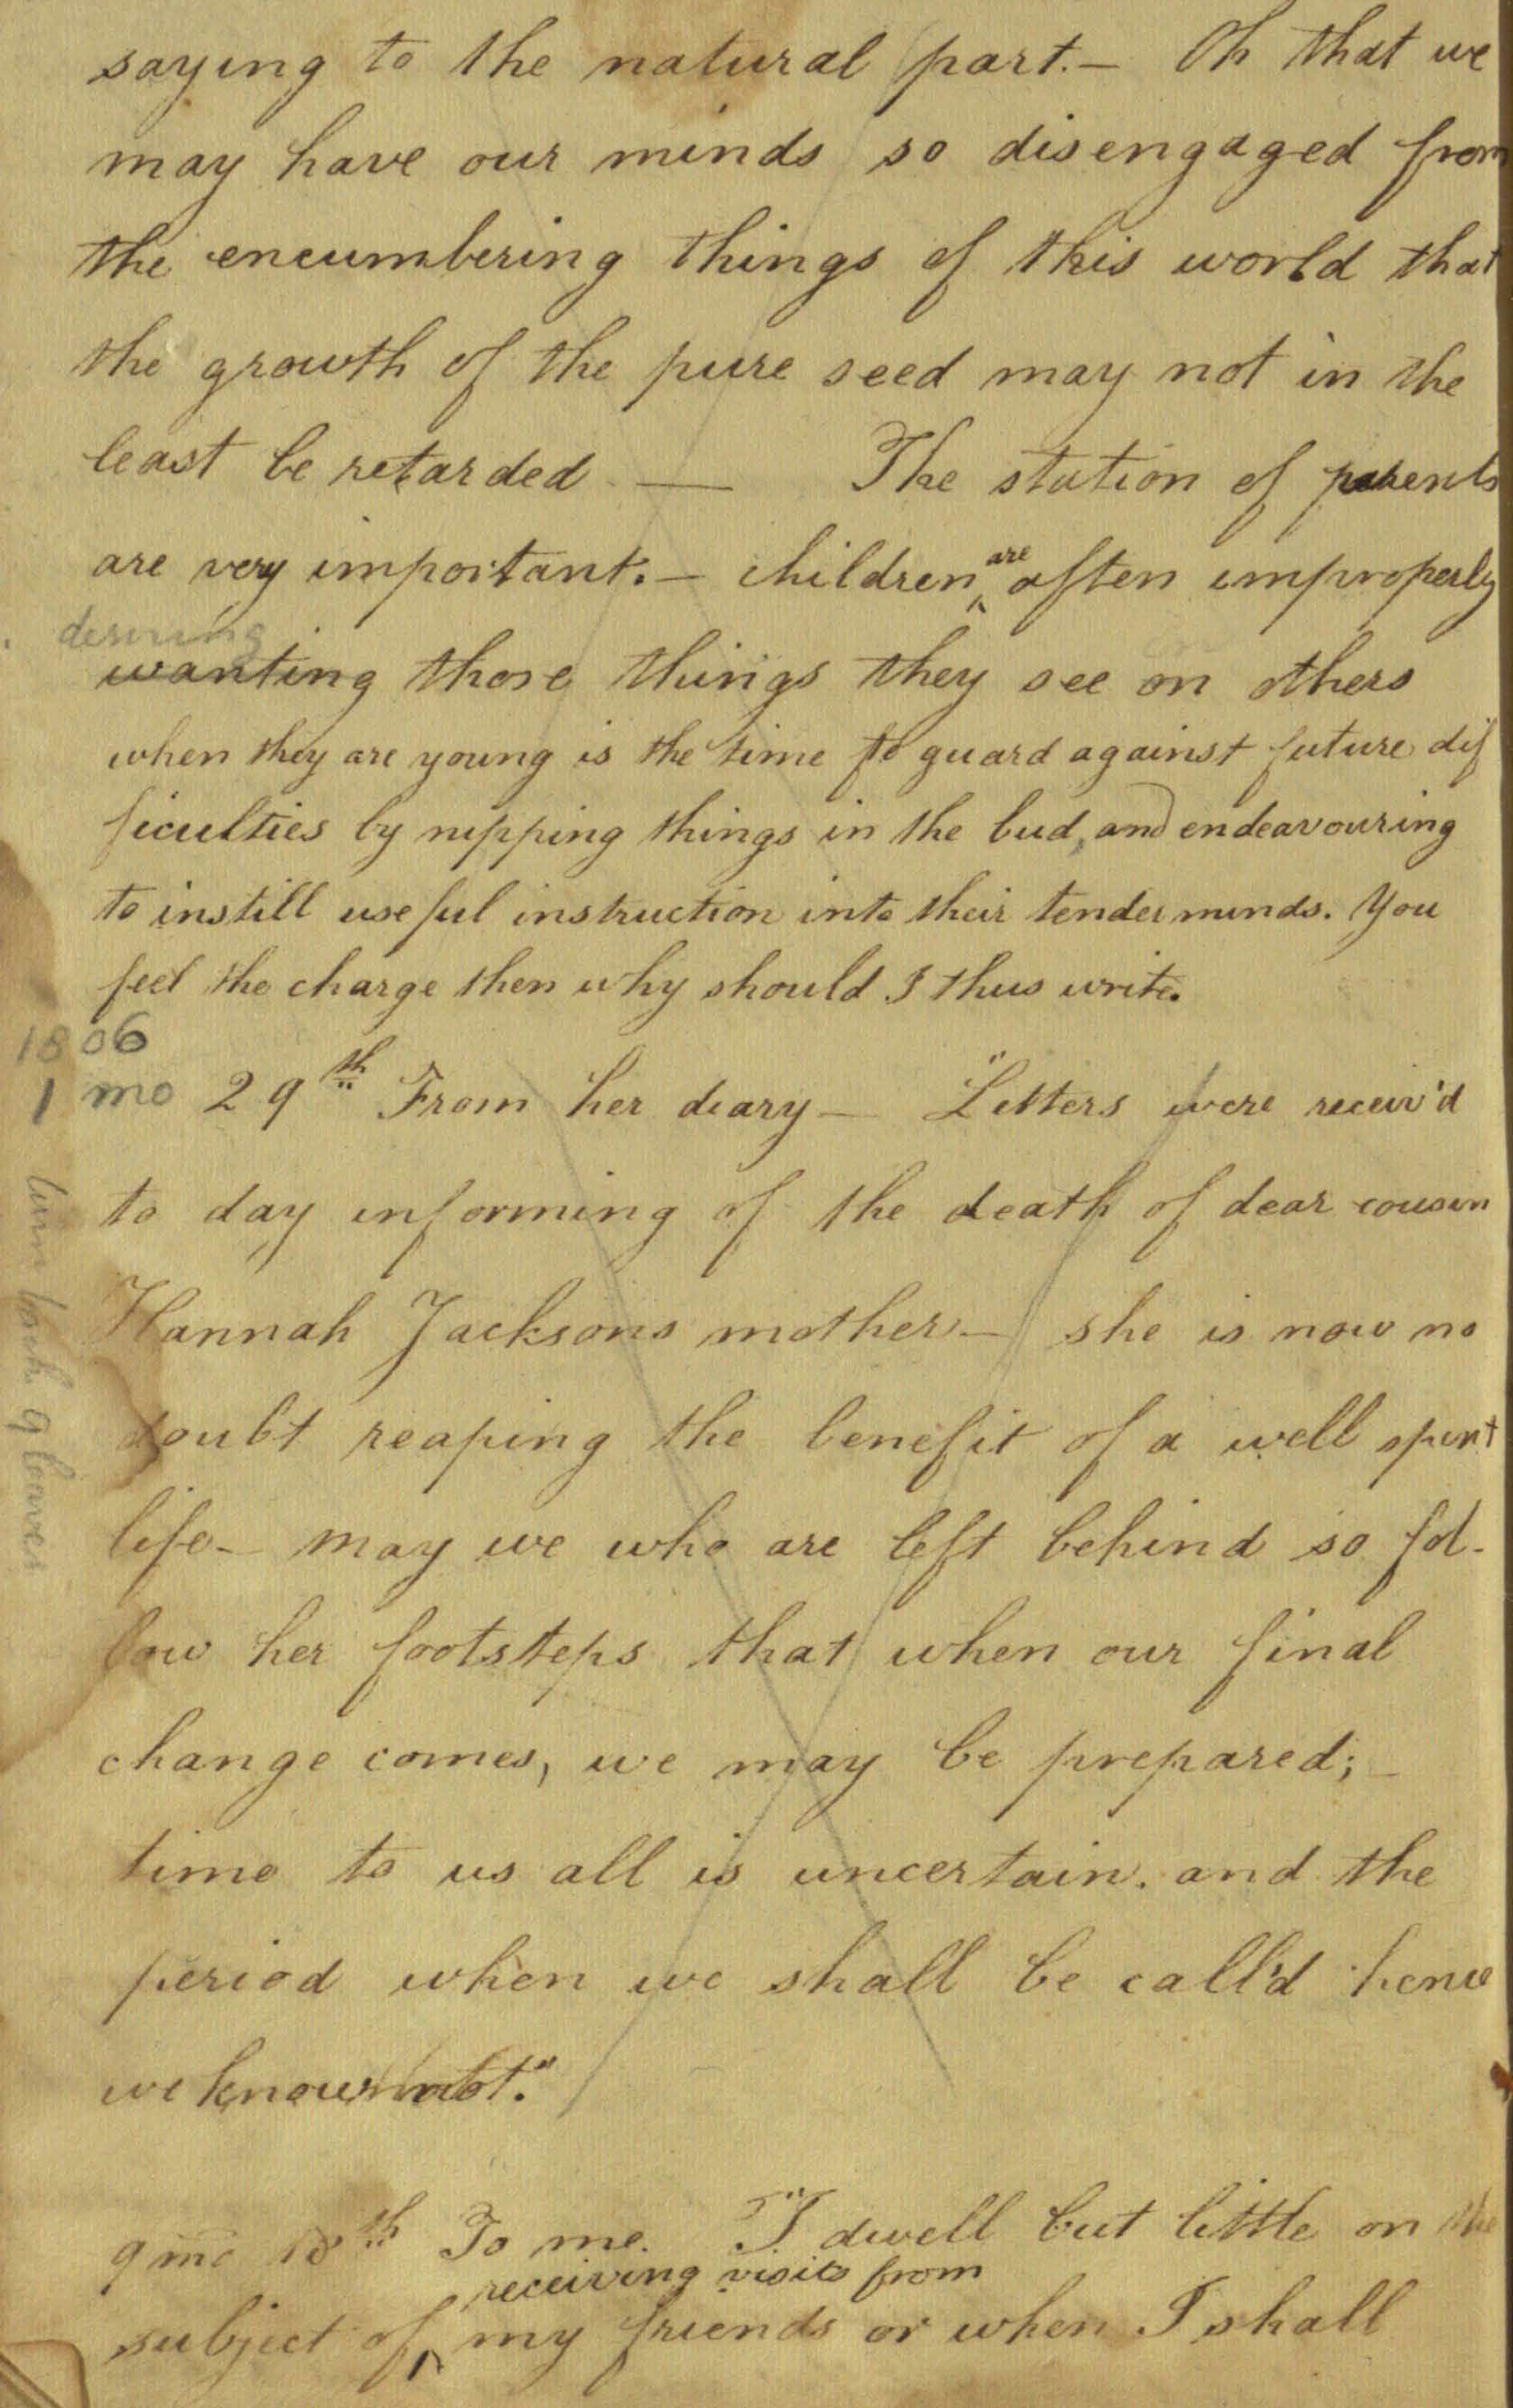 saying to the natural part.— Oh that we
may have our minds so disengaged from
the encumbering things of this world that
the growth of the pure seed may not in the
least be retarded — The station of parents
are very important.— children are often improperly
desiring
wanting those things they see on others
when they are young is the time to guard against future dif
ficulties by nipping things in the bud, and endeavouring
to instill useful instruction into their tender minds. You
feel the charge then why should I thus write.
1806
1 mo 29th From her diary— "Letters were receiv'd
to day informing of the death of dear cousin
Hannah Jacksons mother— she is now no
doubt reaping the benefit of a well spent
life— may we who are left behind so fol-
low her footsteps that when our final
change comes, we may be prepared;—
time to us all is uncertain. and the
period when we shall be call'd hence
we know not."
9 mo 18th To me. "I dwell but little on the
receiving visits from
subject of my friends or when I shall
turn back 9 leaves